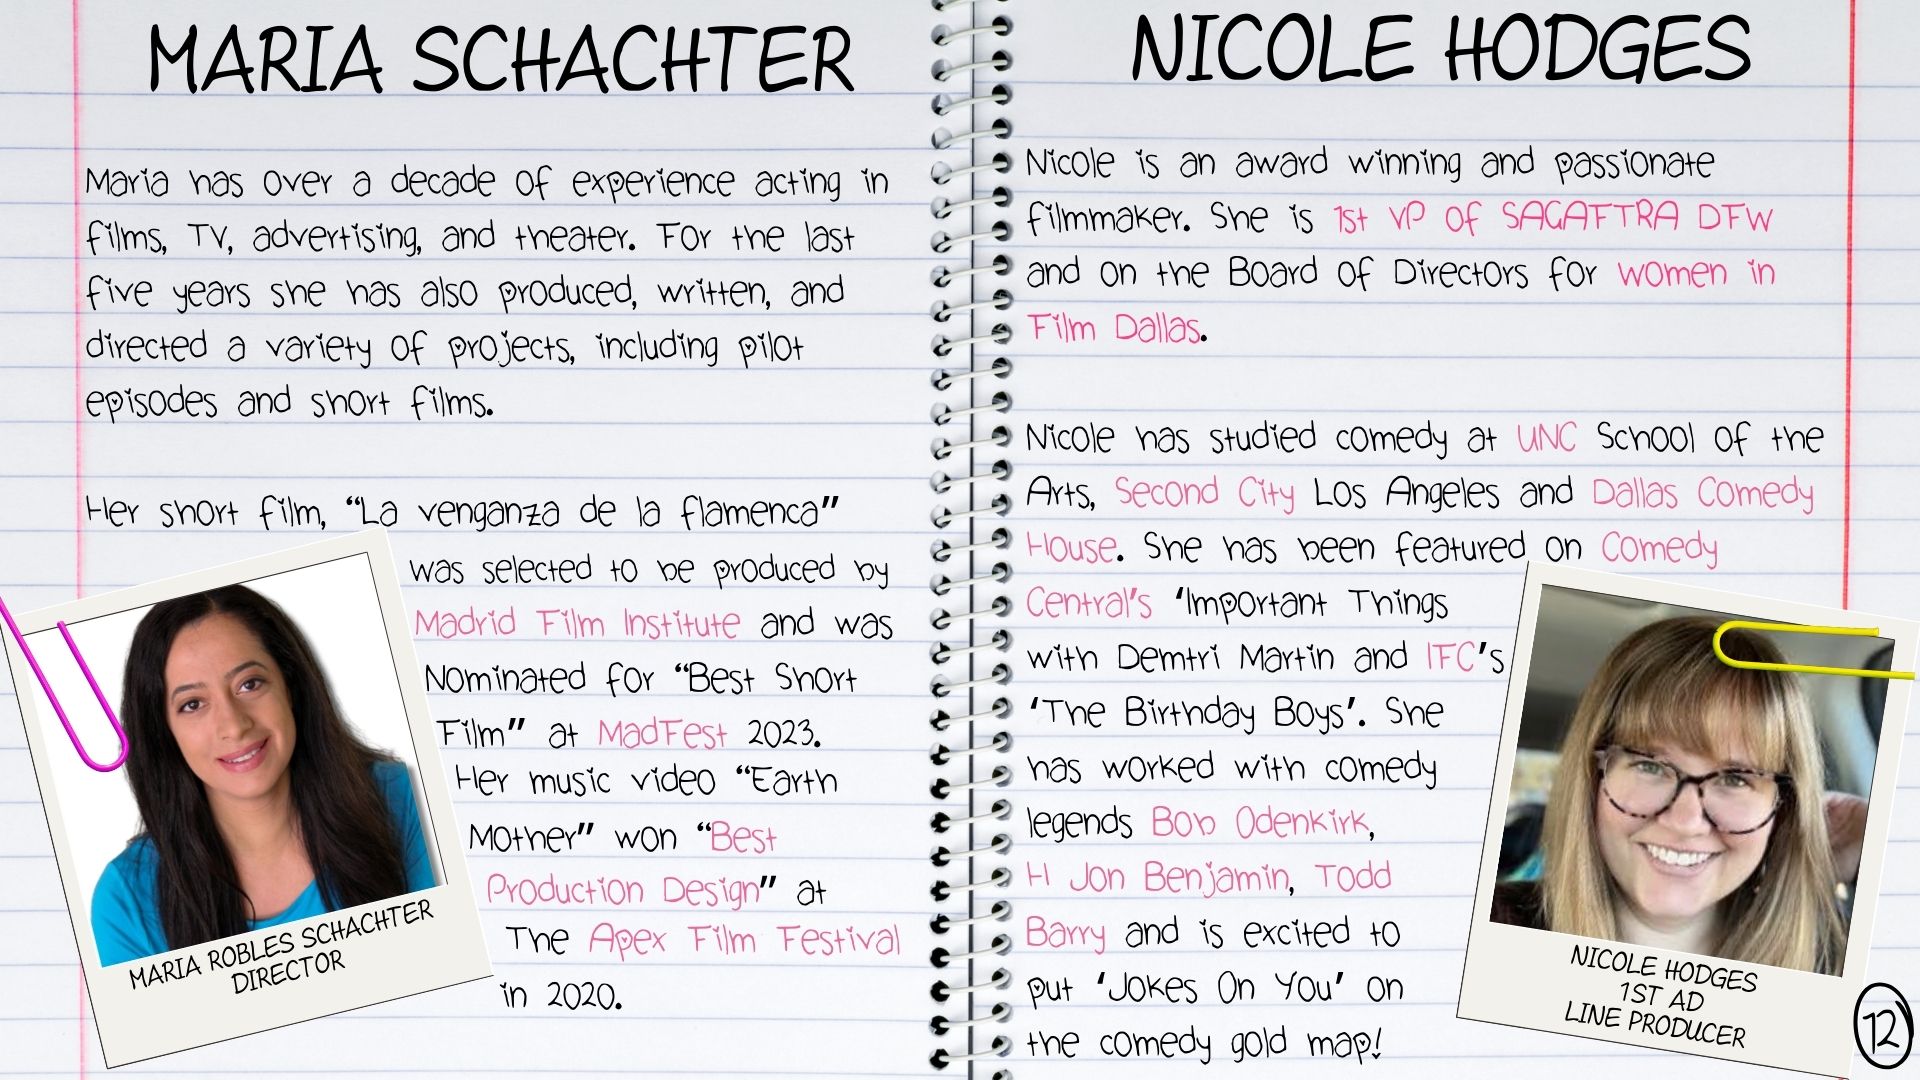 MARIA SCHACHTER
Maria has over a decade of experience acting in
films, TV, advertising, and theater. For the last
five years she has also produced, written, and
directed a variety of projects, including pilot
episodes and short films.
Her short film, “La venganza de la flamenca”
was selected to be produced by
Madrid Film Institute and was
Nominated for “Best Short
Film” at MadFest 2023.
Her music video “Earth
Mother” won “Best
Production Design” at
The Apex Film Festival
in 2020.
MARIA ROBLES SCHACHTER
DIRECTOR
NICOLE HODGES
Nicole is an award winning and passionate
filmmaker. She is 1st VP of SAGAFTRA DFW
and on the Board of Directors for Women in
Film Dallas.
Nicole has studied comedy at UNC School of the
Arts, Second City Los Angeles and Dallas Comedy
House. She has been featured on Comedy
Central’s ‘Important Things
with Demtri Martin and IFC’s
‘The Birthday Boys’. She
has worked with comedy
legends Bob Odenkirk,
H Jon Benjamin, Todd
Barry and is excited to
put ‘Jokes On You’ on
the comedy gold map!
NICOLE HODGES
1ST AD
LINE PRODUCER
12